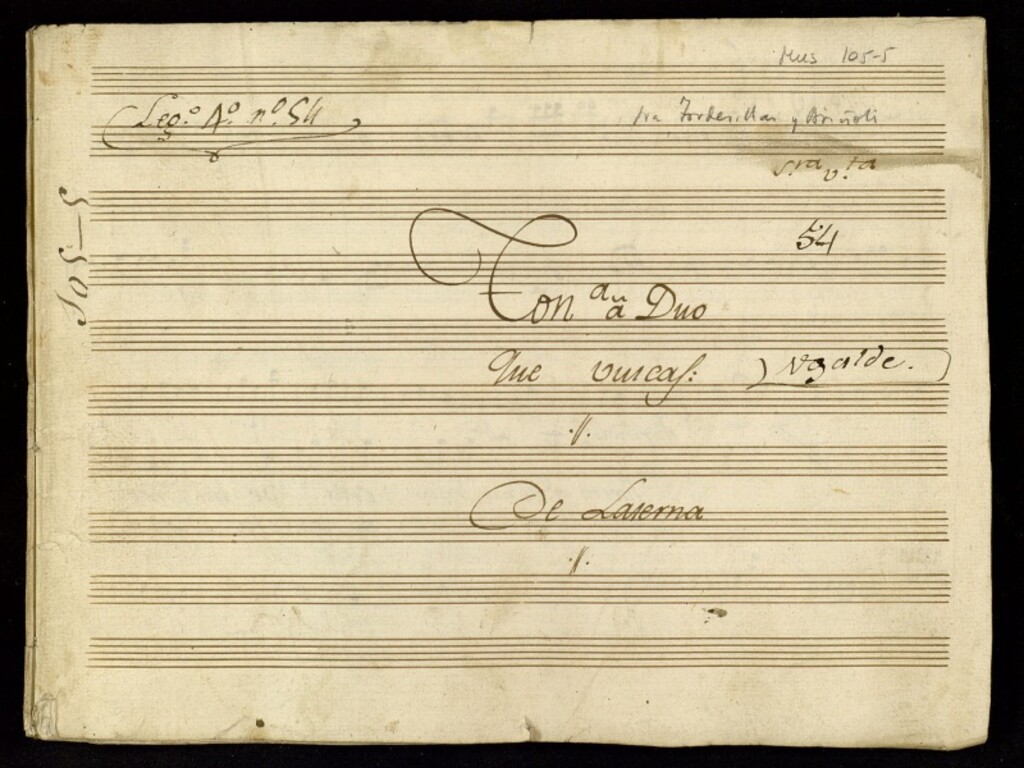 Mus 105-5
Leg.º 4º. nº. 54
fra Tordesillas y Briñoli
S.ra v.ta
105-5
54
Ton.da a Duo
Que vuscas: Ugalde.
De Laserna